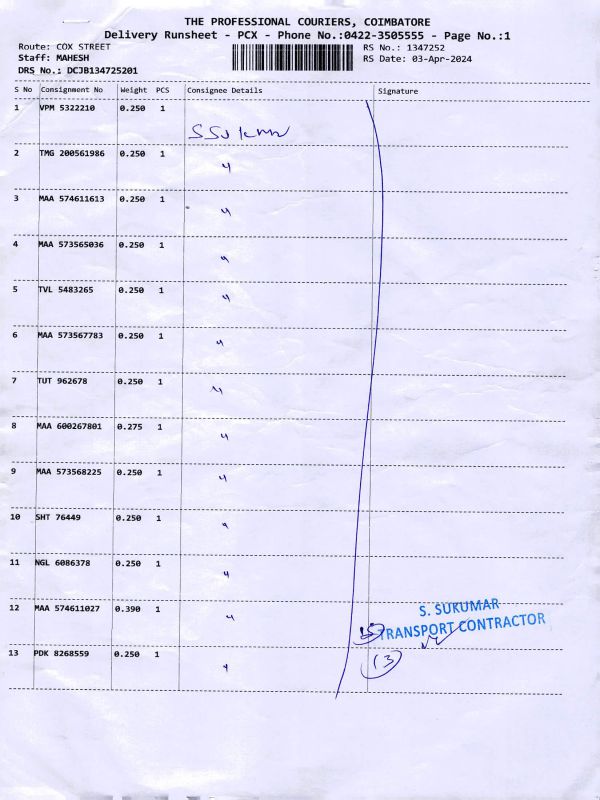 THE PROFESSIONAL COURIERS, COIMBATORE
Delivery Runsheet - PCX - Phone No.:0422-3505555 - Page No.:1
Route: COX STREET
RS No.: 1347252
Staff: MAHESH
RS Date: 03-Apr-2024
DRS No.: DCJB134725201
S No Consignment No Weight PCS Consignee Details Signature
1 VPM 5322210 0.250 1
2 TMG 200561986 0.250 1 "
3 MAA 574611613 0.250 1 "
4 MAA 573565036 0.250 1 "
5 TVL 5483265 0.250 1 "
6 MAA 573567783 0.250 1 "
7 TUT 962678 0.250 1 "
8 MAA 600267801 0.275 1 "
9 MAA 573568225 0.250 1 "
10 SHT 76449 0.250 1 "
11 NGL 6086378 0.250 1 "
12 MAA 574611027 0.390 1 "
S. SUKUMAR
TRANSPORT CONTRACTOR
13 PDK 8268559 0.250 1 "
(13)